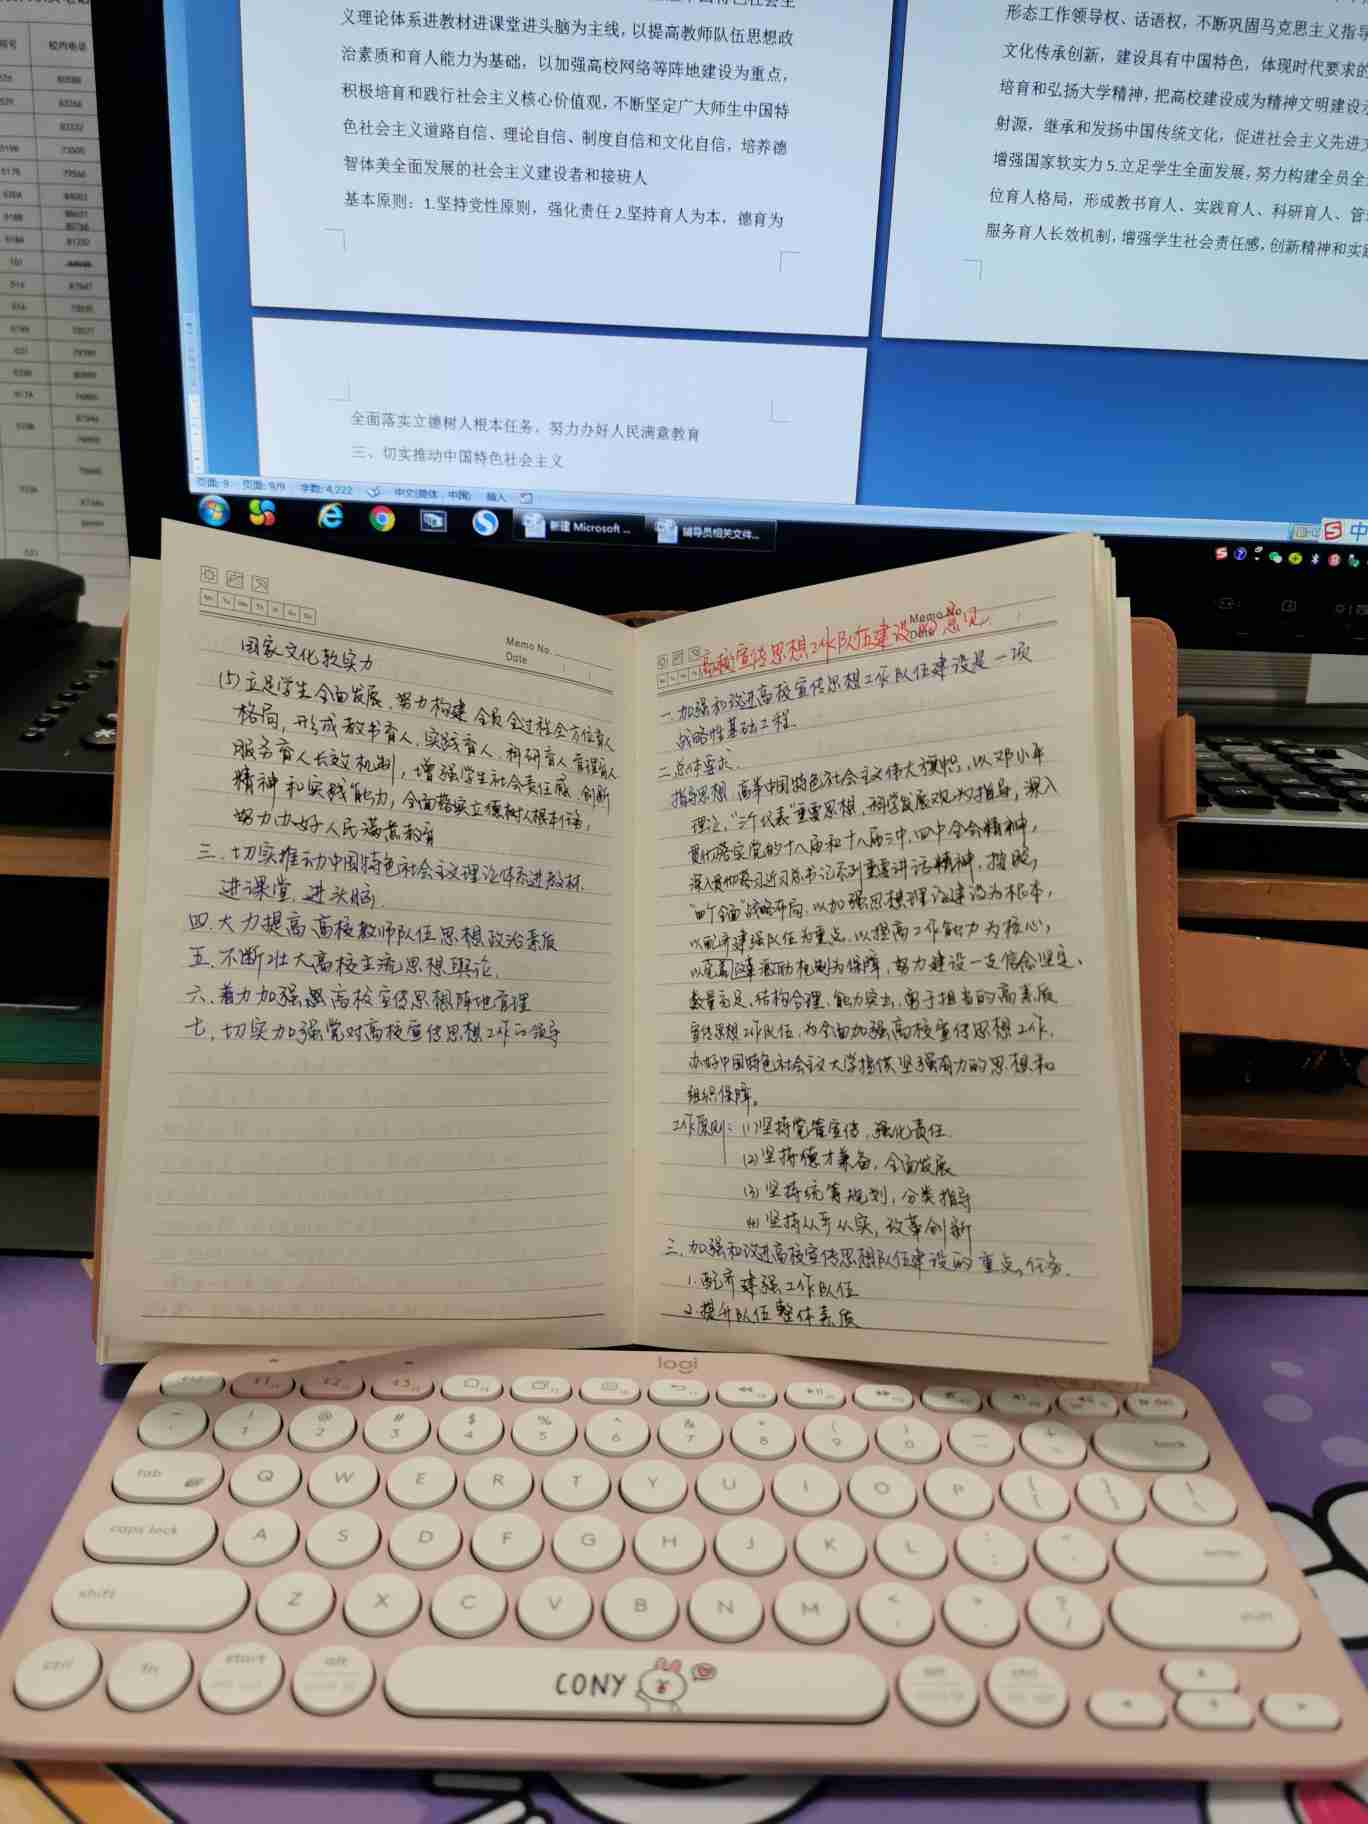 义理论体系进教材进课堂进头脑为主线，以提高教师队伍思想政
治素质和育人能力为基础，以加强高校网络等阵地建设为重点，
积极培育和践行社会主义核心价值观，不断坚定广大师生中国特
色社会主义道路自信、理论自信、制度自信和文化自信，培养德
智体美全面发展的社会主义建设者和接班人
基本原则：1.坚持党性原则，强化责任 2.坚持育人为本，德育为
形态工作领导权、话语权，不断巩固马克思主义指导
文化传承创新，建设具有中国特色，体现时代要求的
培育和弘扬大学精神，把高校建设成为精神文明建设
射源，继承和发扬中国传统文化，促进社会主义先进
增强国家软实力 5.立足学生全面发展，努力构建全员全
位育人格局，形成教书育人、实践育人、科研育人、管
服务育人长效机制，增强学生社会责任感，创新精神和实
全面落实立德树人根本任务，努力办好人民满意教育
三、切实推动中国特色社会主义
页面: 9 页面: 9/9 字数: 4,222 中文(简体，中国) 插入
新建 Microsoft ...
辅导员相关文件...
校内电话
Memo No.
Date
国家文化软实力
(5)立足学生全面发展，努力构建全员全过程全方位育人
格局，形成教书育人、实践育人、科研育人、管理育人
服务育人长效机制，增强学生社会责任感、创新
精神和实践能力，全面落实立德树人根本任务，
努力办好人民满意教育
三、切实推动中国特色社会主义理论体系进教材、
进课堂、进头脑
四.大力提高高校教师队伍思想政治素质
五.不断壮大高校主流思想舆论.
六.着力加强高校宣传思想阵地管理
七.切实加强党对高校宣传思想工作的领导
Memo No.
Date
高校宣传思想工作队伍建设的意见
一.加强和改进高校宣传思想工作队伍建设是一项
战略性基础工程.
二.总体要求.
指导思想:高举中国特色社会主义伟大旗帜，以邓小平
理论，"三个代表"重要思想，科学发展观为指导，深入
贯彻落实党的十八届和十八届三中、四中全会精神，
深入贯彻落实习近平总书记系列重要讲话精神，按照，
"四个全面"战略布局，以加强思想理论建设为根本，
以配齐建强队伍为重点，以提高工作能力为核心，
以完善改革激励机制为保障，努力建设一支信念坚定、
数量充足、结构合理、能力突出、勇于担当的高素质
宣传思想工作队伍，为全面加强高校宣传思想工作，
办好中国特色社会主义大学提供坚强有力的思想和
组织保障。
工作原则：(1)坚持党管宣传，强化责任
(2)坚持德才兼备，全面发展
(3)坚持统筹规划，分类指导
(4)坚持从严从实，改革创新
三.加强和改进高校宣传思想队伍建设的重点任务.
1.配齐建强工作队伍
2.提升队伍整体素质
logi
1 2 3 4 5 6 7 8 9 0
back
tab Q W E R T Y U I O P
caps lock A S D F G H J K L
enter
shift Z X C V B N M
shift
ctrl fn start alt
CONY